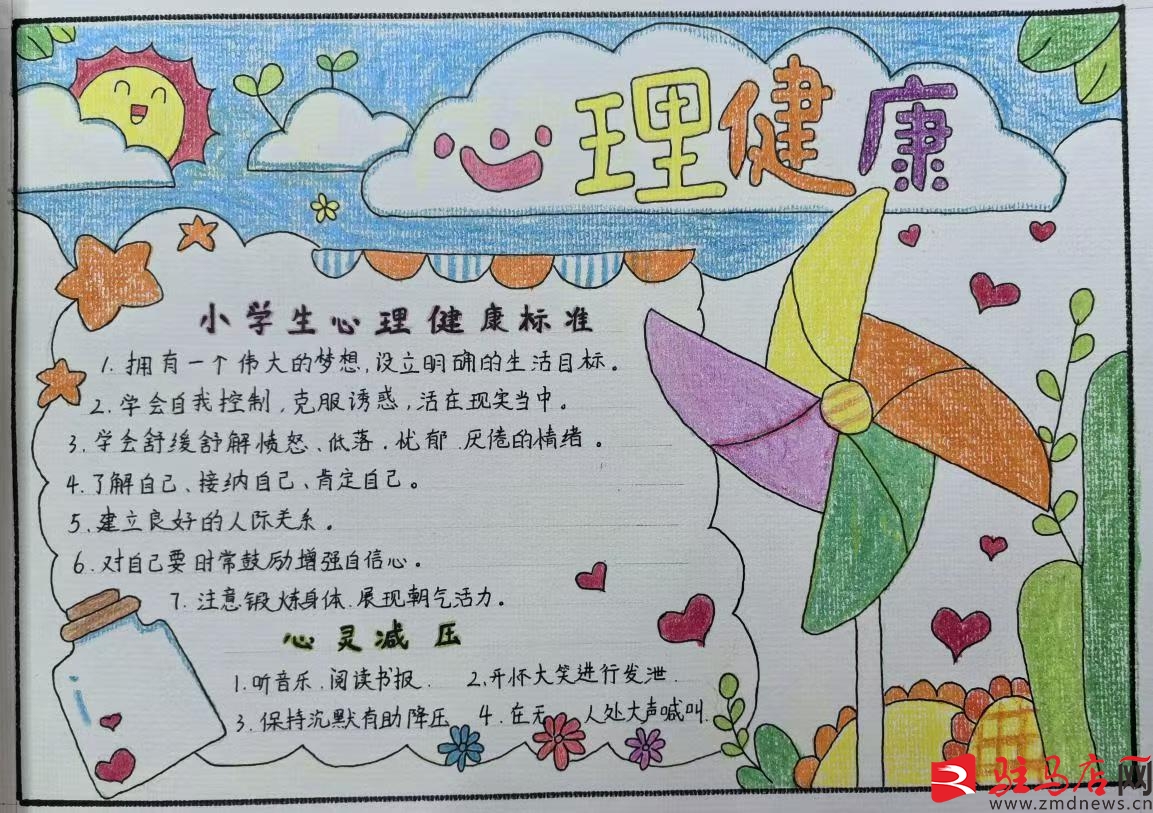 心理健康
小学生心理健康标准
1. 拥有一个伟大的梦想,设立明确的生活目标。
2. 学会自我控制,克服诱惑,活在现实当中。
3. 学会舒缓舒解愤怒、低落,忧郁 厌倦的情绪。
4.了解自己、接纳自己、肯定自己。
5.建立良好的人际关系。
6.对自己要时常鼓励增强自信心。
7.注意锻炼身体.展现朝气活力。
心灵减压
1.听音乐.阅读书报. 2.开怀大笑进行发泄.
3.保持沉默有助降压 4.在无 人处大声喊叫.
驻马店网
www.zmdnews.cn